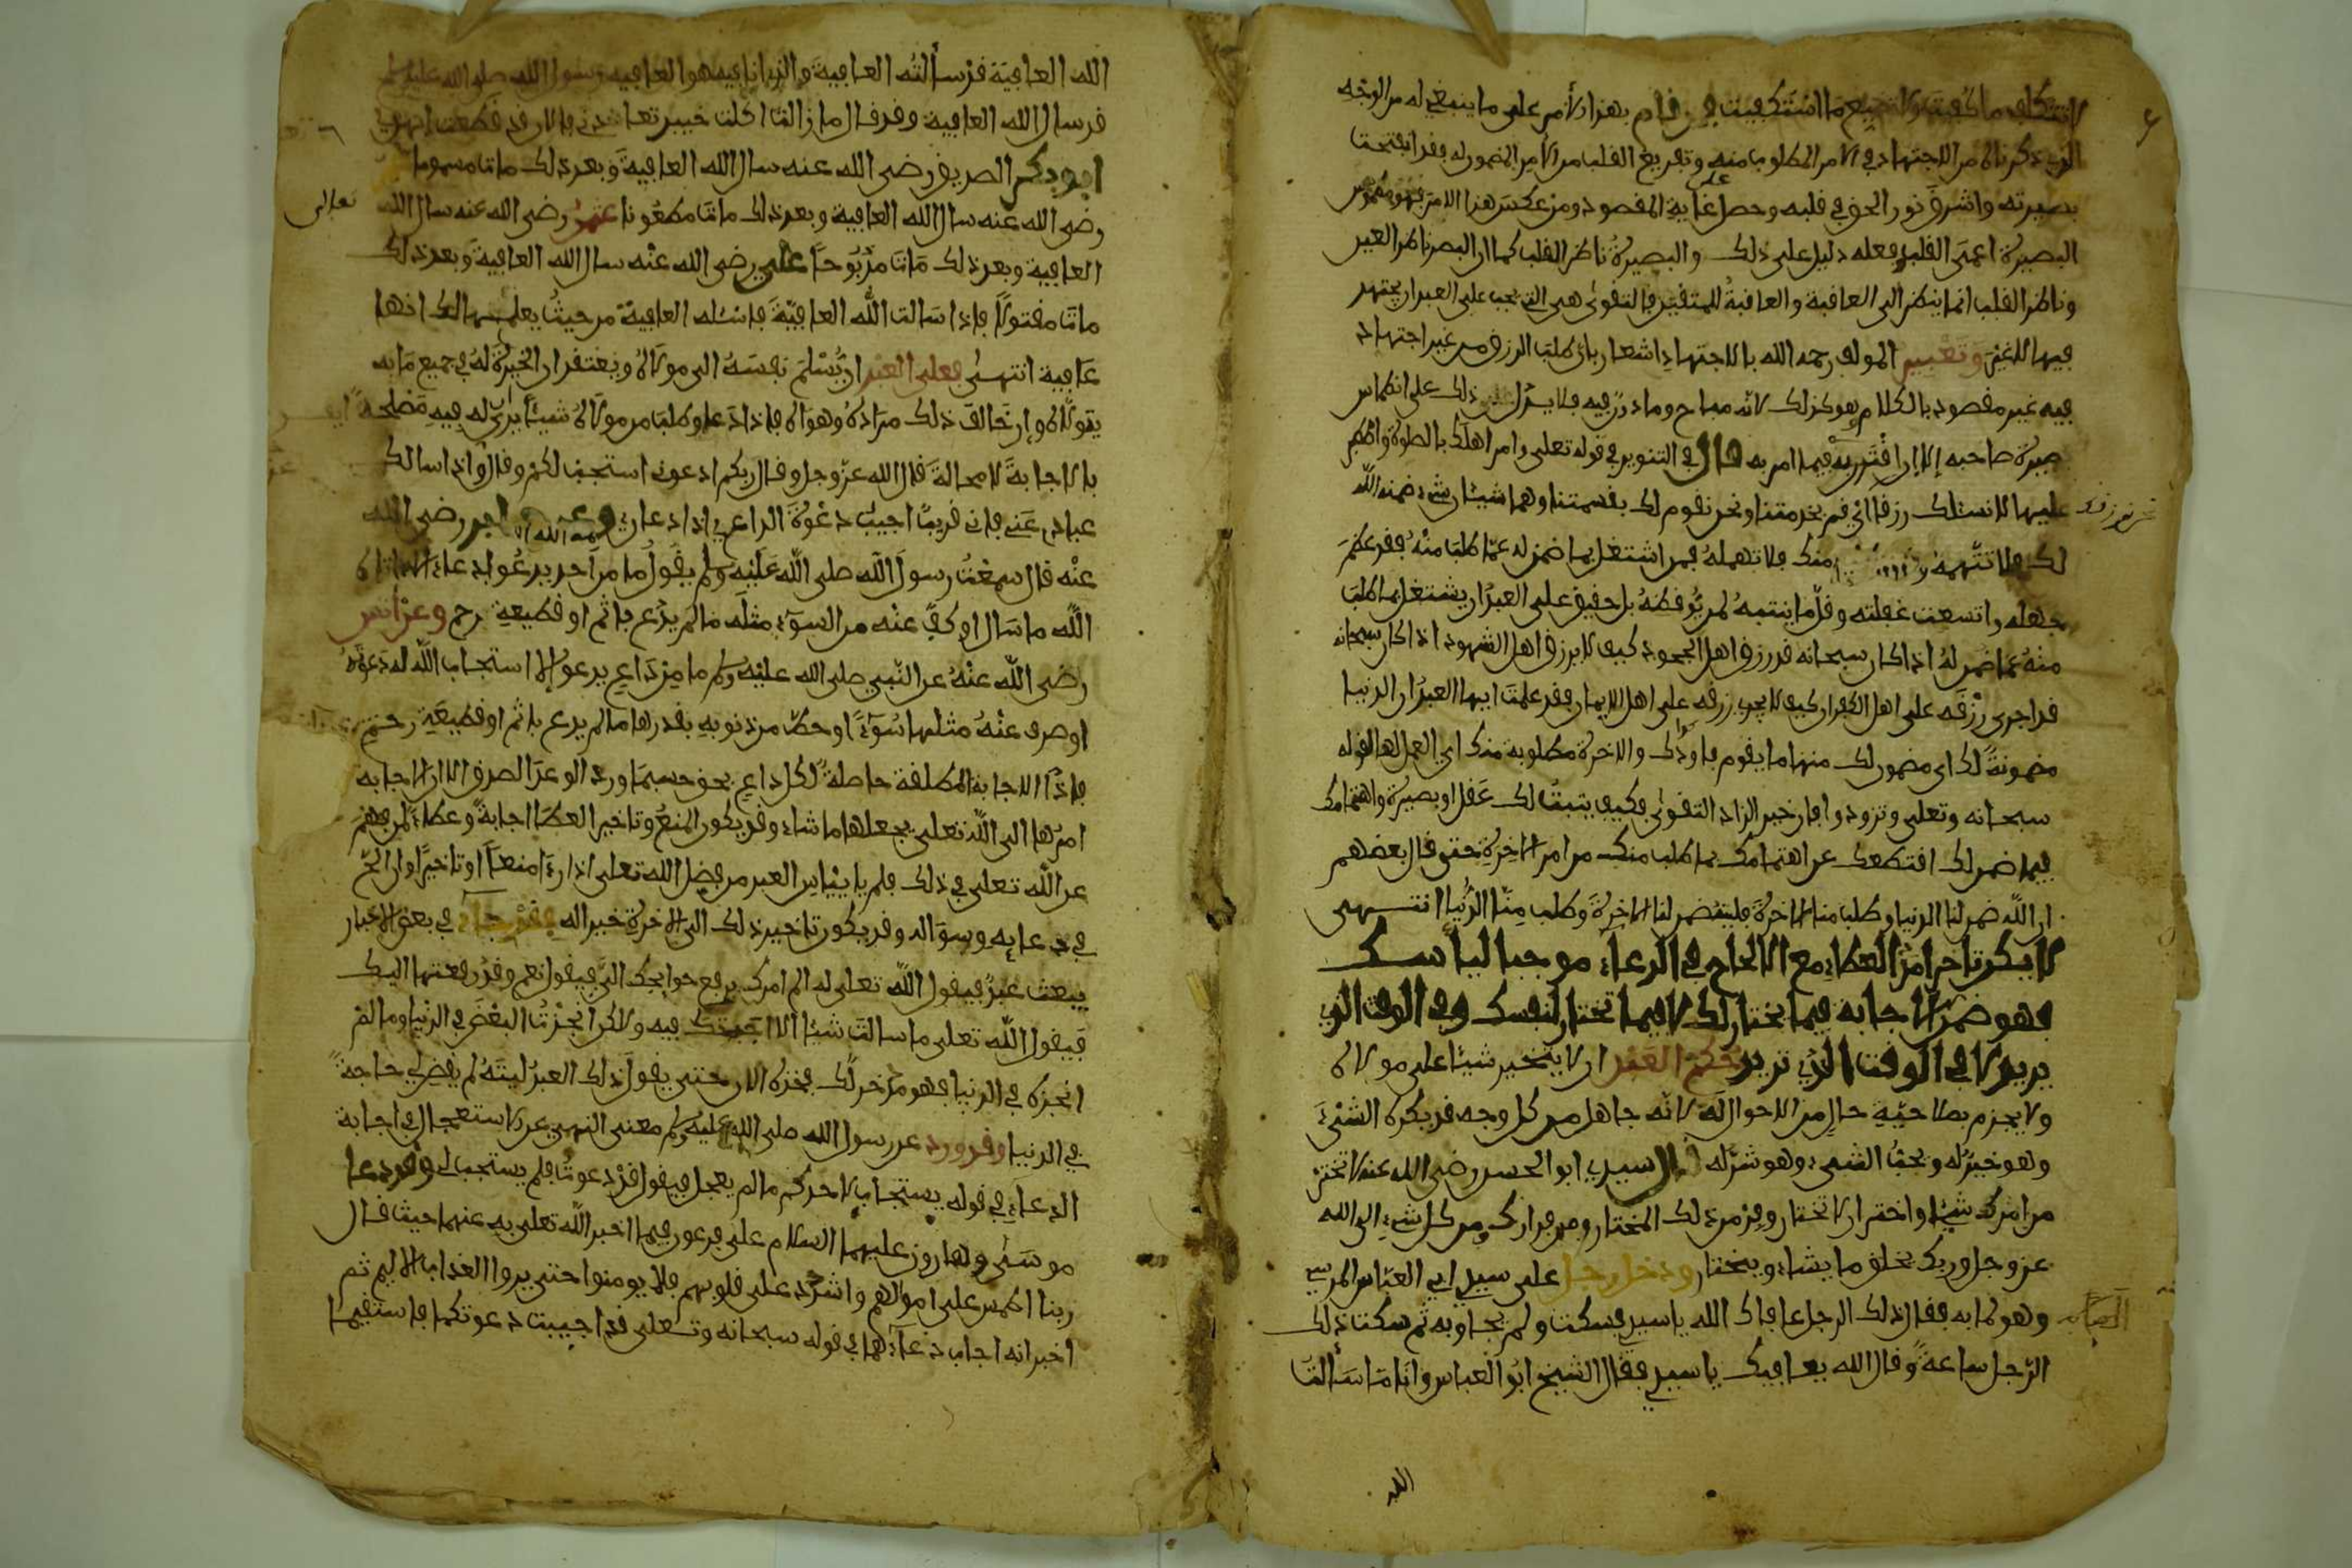 لا تتكلف ما كفيت ولا تضيع ما استكفيت فمن قام بهذا الأمر على ما ينبغي له من الوجه
الذي ذكرناه من الاجتهاد في الامر المطلوب منه وتفريغ القلب من الامر المضمون له فقد انفتحت
بصيرته واشرق نور الحق في قلبه وحصل على غاية المقصود ومن عكس هذا الامر فهو مطموس
البصيرة اعمى القلب وفعله دليل على ذلك والبصيرة ناظر القلب كما ان البصر ناظر العين
وناظر القلب انما ينظر الى العاقبة والعاقبة للمتقين فالتقوى هي التي يجب على العبد ان يجتهد
فيها لا غير وتعبير المولف رحمه الله بالاجتهاد اشعار بان طلب الرزق من غير اجتهاد
فيه غير مقصود بالكلام وهو كذلك لانه مباح وماذون فيه فلا يدل ذلك على انطماس
بصيرة صاحبه إلا إن اقترن به فيما امر به قال في التنوير في قوله تعلى وامر اهلك بالصلوة واصطبر
عليها لا نسئلك رزقا اي قم بخدمتنا ونحن نقوم لك بقسمتنا وهما شيئان شيء ضمنه الله
لك فلا تتهمه وشيء منك فلا تهمله فمن اشتغل بما ضمن له عما طلب منه فقد عظم
جهله واتسعت غفلته وقل ما ينتبه لمن يوقظه بل حقيق على العبد ان يشتغل بما طلب
منه عما ضمن له اذا كان سبحانه قد رزق اهل الجحود كيف لا يرزق اهل الشهود اذا كان سبحانه
قد اجرى رزقه على اهل الكفران كيف لا يجري رزقه على اهل الايمان فقد علمت ايها العبد ان الدنيا
مضمونة لك اي مضمون لك منها ما يقوم باودك والاخرة مطلوبة منك اي العمل لها لقوله
سبحانه وتعلى وتزودوا فان خير الزاد التقوى فكيف يثبت لك عقل او بصيرة واهتمامك
فيما ضمن لك اقتطعك عن اهتمامك بما طلب منك من امر الاخرة حتى قال بعضهم
ان الله ضمن لنا الدنيا وطلب منا الاخرة فليته ضمن لنا الاخرة وطلب منا الدنيا انتهى
لا يكن تاخر امد العطاء مع الالحاح في الدعاء موجبا لياسك
فهو ضمن الاجابة فيما يختار لك لا فيما تختار لنفسك وفي الوقت الذي
يريد لا في الوقت الذي تريد حكم العبد ان لا يتخير شيئا على مولاه
ولا يجزم بصلاحية حال من الاحوال له لانه جاهل من كل وجه فقد يكره الشيء
وهو خير له ويحب الشيء وهو شر له قال سيدي ابو الحسن رضي الله عنه لا تختر
من امرك شيئا واختر ان لا تختار وفر من ذلك المختار ومن فرارك ومن كل شيء الى الله
عز وجل وربك يخلق ما يشاء ويختار ودخل رجل على سيدي ابي العباس المرسي
وهو لما به فقال ذلك الرجل عافاك الله يا سيدي فسكت ولم يجاوبه ثم سكت ذلك
الرجل ساعة وقال الله يعافيك يا سيدي فقال الشيخ ابو العباس وانا ما سألت
الله
الله العافية قد سألته العافية والذي انا فيه هو العافية رسول الله صلى الله عليه وسلم
قد سال الله العافية وقد قال ما زالت اكلة خيبر تعاودني فالان قد قطعت ابهري
ابو بكر الصديق رضى الله عنه سال الله العافية وبعد ذلك مات مسموما
رضي الله عنه سال الله العافية وبعد ذلك مات مطعونا عثمن رضى الله عنه سال الله تعالى
العافية وبعد ذلك مات مذبوحا علي رضى الله عنه سال الله العافية وبعد ذلك
مات مقتولا فاذا سالت الله العافية فاسئله العافية من حيث يعلمها لك انها
عافية انتهى فعلى العبد ان يسلم نفسه الى مولاه ويعتقد ان الخيرة له في جميع ما به
يتولاه وان خالف ذلك مراده وهواه فاذا دعا وطلب من مولاه شيئا يرى له فيه مصلحة
بالاجابة لا محالة قال الله عز وجل وقال ربكم ادعوني استجب لكم وقال واذا سالك
عبادي عني فاني قريب اجيب دعوة الداعي اذا دعان وعن جابر رضى الله
عنه قال سمعت رسول الله صلى الله عليه وسلم يقول ما من احد يدعو بدعاء الا اتاه
الله ما سال او كف عنه من السوء مثله ما لم يدع باثم او قطيعة رحم وعن انس
رضى الله عنه عن النبي صلى الله عليه وسلم ما من داع يدعو الا استجاب الله له دعوته
او صرف عنه مثلها سوءا او حط من ذنوبه بقدرها ما لم يدع باثم او قطيعة رحم
فاذا الاجابة المطلقة حاصلة لكل داع بحق حسبما ورد الوعد الصدق الا ان الاجابة
امرها الى الله تعلى يجعلها ما شاء وقد يكون المنع وتاخير العطا اجابة وعطاء لمن فهم
عن الله تعلى في ذلك فلم ييئس العبد من فضل الله تعلى اذا رءا منعا او تاخيرا وان الح
في دعايه وسوءاله وقد يكون تاخير ذلك الى الاخرة خيرا له وقد جاء في بعض الاخبار
يبعث عبد فيقول الله تعلى له الم امرك برفع حوايجك الي فيقول نعم وقد رفعتها اليك
فيقول الله تعلى ما سالت شيئا الا اجبتك فيه ولاكن انجزت البعض في الدنيا وما لم
انجزه في الدنيا فهو مدخر لك فخذه الان حتى يقول ذلك العبد ليته لم يقض لي حاجة
في الدنيا وقد ورد عن رسول الله صلى الله عليه وسلم معنى النهي عن الاستعجال في اجابة
الدعاء في قوله يستجاب لاحدكم ما لم يعجل فيقول قد دعوت فلم يستجب لي وقد دعا
موسى وهارون عليهما السلام على فرعون فيما اخبر الله تعلى به عنهما حيث قال
ربنا اطمس على اموالهم واشدد على قلوبهم فلا يومنوا حتى يروا العذاب الاليم ثم
اخبر انه اجاب دعاءهما في قوله سبحانه وتعلى قد اجيبت دعوتكما فاستقيما